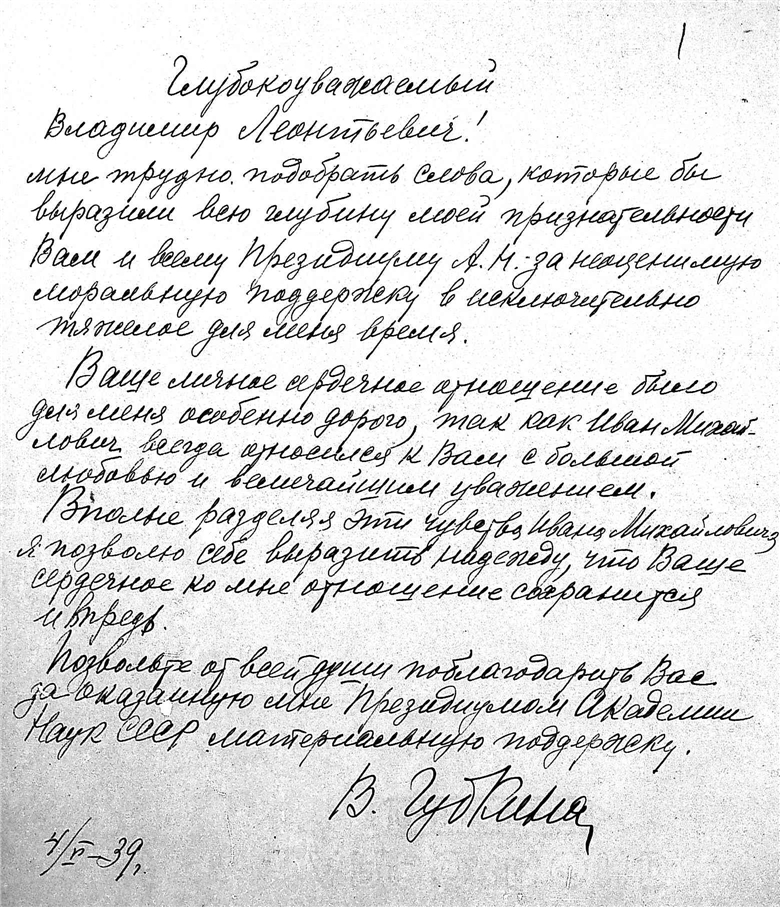 1
Глубокоуважаемый
Владимир Леонтьевич!
мне трудно подобрать слова, которые бы
выразили всю глубину моей признательности
Вам и всему Президиуму А.Н. за неоценимую
моральную поддержку в исключительно
тяжелое для меня время.
Ваше личное сердечное отношение было
для меня особенно дорого, так как Иван Михай-
лович всегда относился к Вам с большой
любовью и величайшим уважением.
Вполне разделяя эти чувства Ивана Михайловича
я позволю себе выразить надежду, что Ваше
сердечное ко мне отношение сохранится
и впредь.
Позвольте от всей души поблагодарить Вас
за оказанную мне Президиумом Академии
Наук СССР материальную поддержку.
В. Губкина
4/VI–39г.